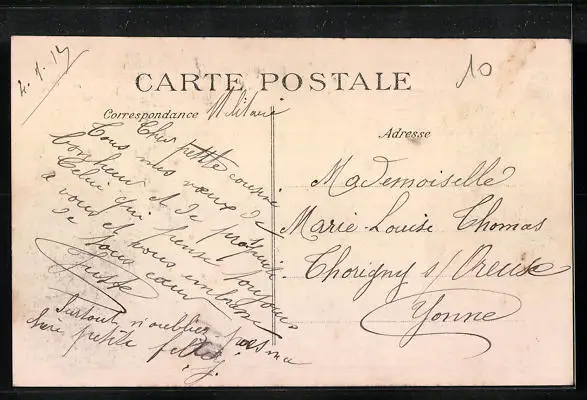 4.1.15
CARTE POSTALE
10
Correspondance Militaire
Adresse
Cher petite cousine
Tous mes vœux de
bonheur et de prospérité
Celui qui pense toujours
à vous et vous embrasse
de tous cœur
Surtout n'oublier pas ma
chère petite
Mademoiselle
Marie-Louise Thomas
Thorigny s/ Oreuse
Yonne